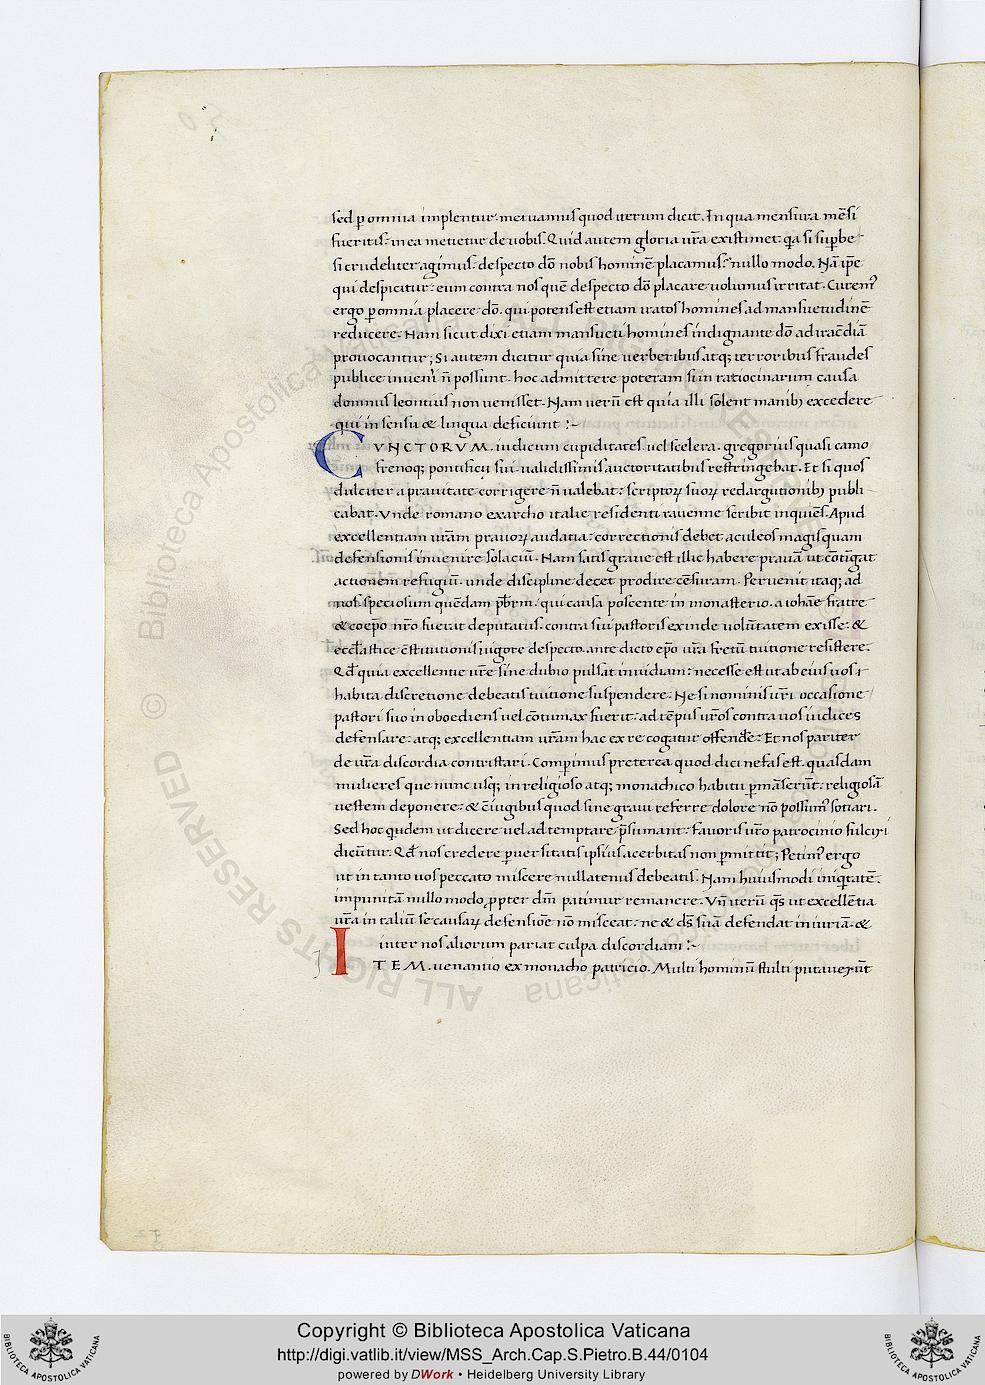 sed ꝑ omnia implentur. metuamus quod iterum dicit. In qua mensura mēsi
fueritis: in ea metietur de uobis. Quid autem gloria ur̄a existimet: qa si suꝑbe
si crudeliter agimus: despecto dō nobis hominē placamus: nullo modo. Nā ip̄e
qui despicitur: eum contra nos quē despecto dō placare uolumus irritat. Curem᾽
ergo ꝑ omnia placere dō. qui potens est etiam iratos homines ad mansuetudinē
reducere. Nam sicut dixi etiam mansueti homines indignante dō ad iracūdiā
prouocantur; Si autem dicitur quia sine uerberibus atq; terroribus fraudes
publice inueniri n̄ possunt. hoc admittere poteram si in ratiocinarum causa
domnus leontius non uenisset. Nam uerū est quia illi solent manib; excedere
qui in sensu & lingua deficiunt :~
CVNCTORVM. iudicum cupiditates uel scelera. gregorius quasi camo
frenoq; pontificij sui ualidissimis auctoritatibus restringebat. Et si quos
dulciter a prauitate corrigere n̄ ualebat: scriptoꝝ suoꝝ redargutionib; publi
cabat. Vnde romano exarcho italie residenti rauenne scribit inquiens. Apud
excellentiam ur̄am prauoꝝ audatia: correctionis debet aculeos magis quam
defensionis inuenire solaciū. Nam satis graue est illic habere prauā ut cōtingat
actionem refugiū. unde discipline decet prodire cēsuram. Peruenit itaq; ad
nos. speciosum quēdam p̄brm. qui causa poscente in monasterio. a iohāe fratre
& coep̄o nr̄o fuerat deputatus. contra sui pastoris exinde uolūtatem exisse: &
eccl̄astice cōstitutionis uigore despecto. ante dicto ep̄o ur̄a fretū tuitione resistere.
Qd̄ quia excellentie ur̄e sine dubio pulsat inuidiam: necesse est ut ab eius uos
habita discretione debeatis tuitione suspendere. Ne si nominis ur̄i occasione
pastori suo in oboediens uel cōtumax fuerit: ad tēpus ur̄os contra uos iudices
defensare: atq; excellentiam ur̄am hac ex re cogatur offendere: Et nos pariter
de ur̄a discordia contristari. Comperimus preterea quod dici nefas est. quasdam
mulieres que nunc usq; in religioso atq; monachico habitu ꝑmāserūt: religiosā
uestem deponere: & cōiugibus quod sine graui referre dolore nō possim᾽ sotiari.
Sed hoc quidem ut dicere uel ad temptare p̄sumant: fauoris ur̄o patrocinio fulciri
dicūtur. Qd̄ nos credere ꝑuersitatis ipsius acerbitas non ꝑmittit; Petim᾽ ergo
ut in tanto uos peccato miscere nullatenus debeatis. Nam huiusmodi iniquitatē.
impunitā nullo modo ꝓpter dm̄ patimur remanere. Vn̄ iterū qs̄ ut excellētia
ur̄a in taliū se causaꝝ defensiōe nō misceat: ne & ds̄ suā defendat iniuriā. &
inter nos aliorum pariat culpa discordiam :~
ITEM. uenantio ex monacho patricio. Multi hominū stulti putauerūt
Copyright © Biblioteca Apostolica Vaticana
http://digi.vatlib.it/view/MSS_Arch.Cap.S.Pietro.B.44/0104
powered by DWork • Heidelberg University Library